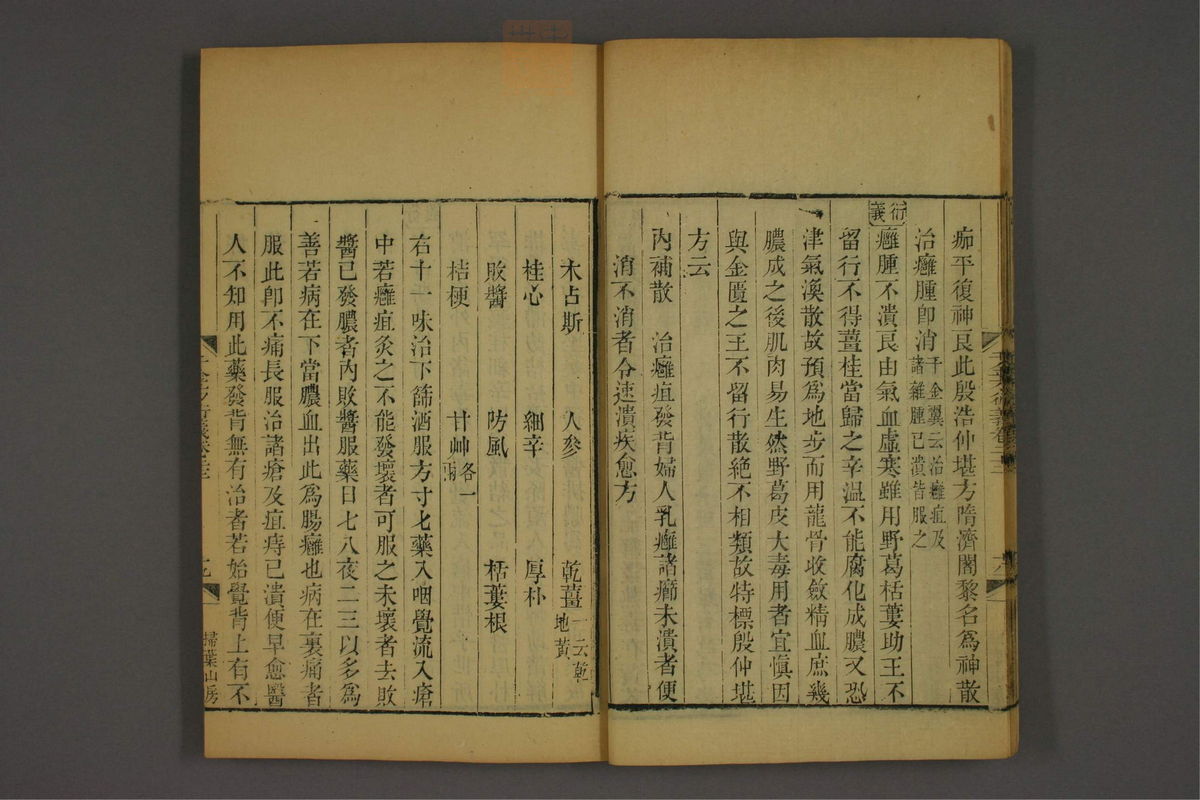 痂平復神良此殷浩仲堪方隋濟闍黎名為神散
治癰腫即消千金翼云治癰疽及諸雜腫已潰皆服之
衍義
癰腫不潰良由氣血虛寒雖用野葛栝蔞助王不
留行不得薑桂當歸之辛溫不能腐化成膿又恐
津氣渙散故預為地步而用龍骨收斂精血庶幾
膿成之後肌肉易生然野葛皮大毒用者宜慎因
與金匱之王不留行散絕不相類故特標殷仲堪
方云
內補散 治癰疽發背婦人乳癰諸癤未潰者便
消不消者令速潰疾愈方
木占斯 人參 乾薑一云乾地黃
桂心 細辛 厚朴
敗醬 防風 栝蔞根
桔梗 甘艸各一兩
右十一味治下篩酒服方寸匕藥入咽覺流入瘡
中若癰疽灸之不能發壞者可服之未壞者去敗
醬已發膿者內敗醬服藥日七八夜二三以多為
善若病在下當膿血出此為腸癰也病在裏痛者
服此即不痛長服治諸瘡及疽痔已潰便早愈醫
人不知用此藥發背無有治者若始覺背上有不
掃葉山房